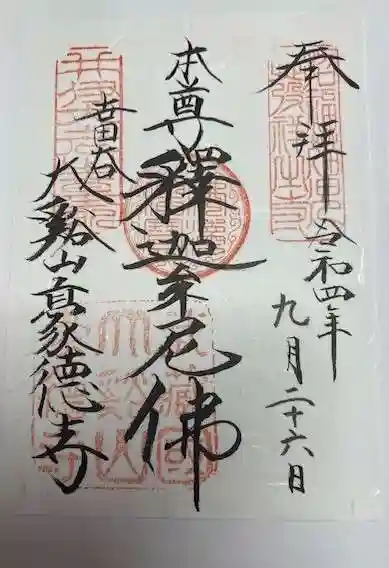 奉拝
令和四年
九月二十六日
本尊
釋迦牟尼佛
世田谷
大谿山豪德寺